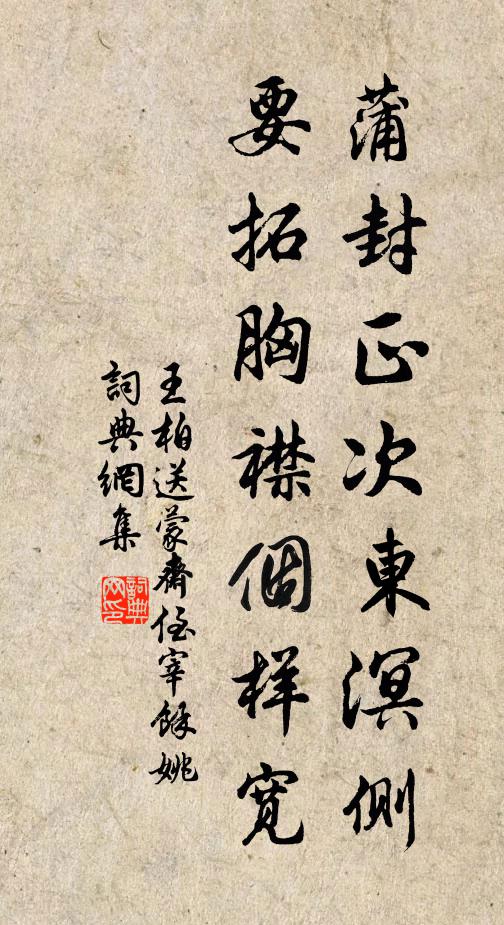 蒲封正次東溟側
要拓胸襟個樣寬
王柏送蒙齋侄宰餘姚
詞典網集
詞典網印